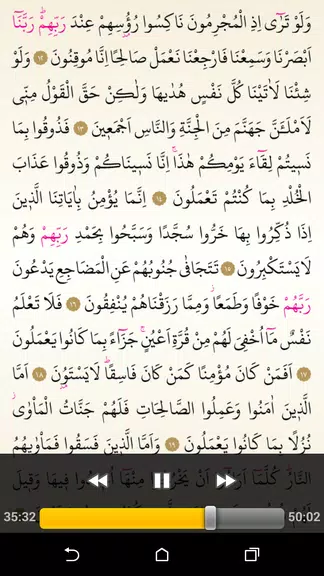 وَلَوْ تَرٰٓى اِذِ الْمُجْرِمُونَ نَاكِسُوا رُؤُ۫سِهِمْ عِنْدَ رَبِّهِمْۜ رَبَّنَٓا
اَبْصَرْنَا وَسَمِعْنَا فَارْجِعْنَا نَعْمَلْ صَالِحًا اِنَّا مُوقِنُونَ ١٢ وَلَوْ
شِئْنَا لَاٰتَيْنَا كُلَّ نَفْسٍ هُدٰيهَا وَلٰكِنْ حَقَّ الْقَوْلُ مِنّ۪ي
لَاَمْلَـَٔنَّ جَهَنَّمَ مِنَ الْجِنَّةِ وَالنَّاسِ اَجْمَع۪ينَ ١٣ فَذُوقُوا بِمَا
نَس۪يتُمْ لِقَٓاءَ يَوْمِكُمْ هٰذَاۚ اِنَّا نَس۪ينَاكُمْ وَذُوقُوا عَذَابَ
الْخُلْدِ بِمَا كُنْتُمْ تَعْمَلُونَ ١٤ اِنَّمَا يُؤْمِنُ بِاٰيَاتِنَا الَّذ۪ينَ
اِذَا ذُكِّرُوا بِهَا خَرُّوا سُجَّدًا وَسَبَّحُوا بِحَمْدِ رَبِّهِمْ وَهُمْ
لَا يَسْتَكْبِرُونَ ١٥ تَتَجَافٰى جُنُوبُهُمْ عَنِ الْمَضَاجِعِ يَدْعُونَ
رَبَّهُمْ خَوْفًا وَطَمَعًاۘ وَمِمَّا رَزَقْنَاهُمْ يُنْفِقُونَ ١٦ فَلَا تَعْلَمُ
نَفْسٌ مَٓا اُخْفِيَ لَهُمْ مِنْ قُرَّةِ اَعْيُنٍۚ جَزَٓاءً بِمَا كَانُوا يَعْمَلُونَ
١٧ اَفَمَنْ كَانَ مُؤْمِنًا كَمَنْ كَانَ فَاسِقًاۜ لَا يَسْتَوُ۫نَ ١٨ اَمَّا
الَّذ۪ينَ اٰمَنُوا وَعَمِلُوا الصَّالِحَاتِ فَلَهُمْ جَنَّاتُ الْمَأْوٰىۘ
نُزُلًا بِمَا كَانُوا يَعْمَلُونَ ١٩ وَاَمَّا الَّذ۪ينَ فَسَقُوا فَمَأْوٰيهُمُ
النَّارُۜ كُلَّمَٓا اَرَادُٓوا اَنْ يَخْرُجُوا مِنْهَٓا اُع۪يدُوا ف۪يهَا وَق۪يلَ
35:32 50:02